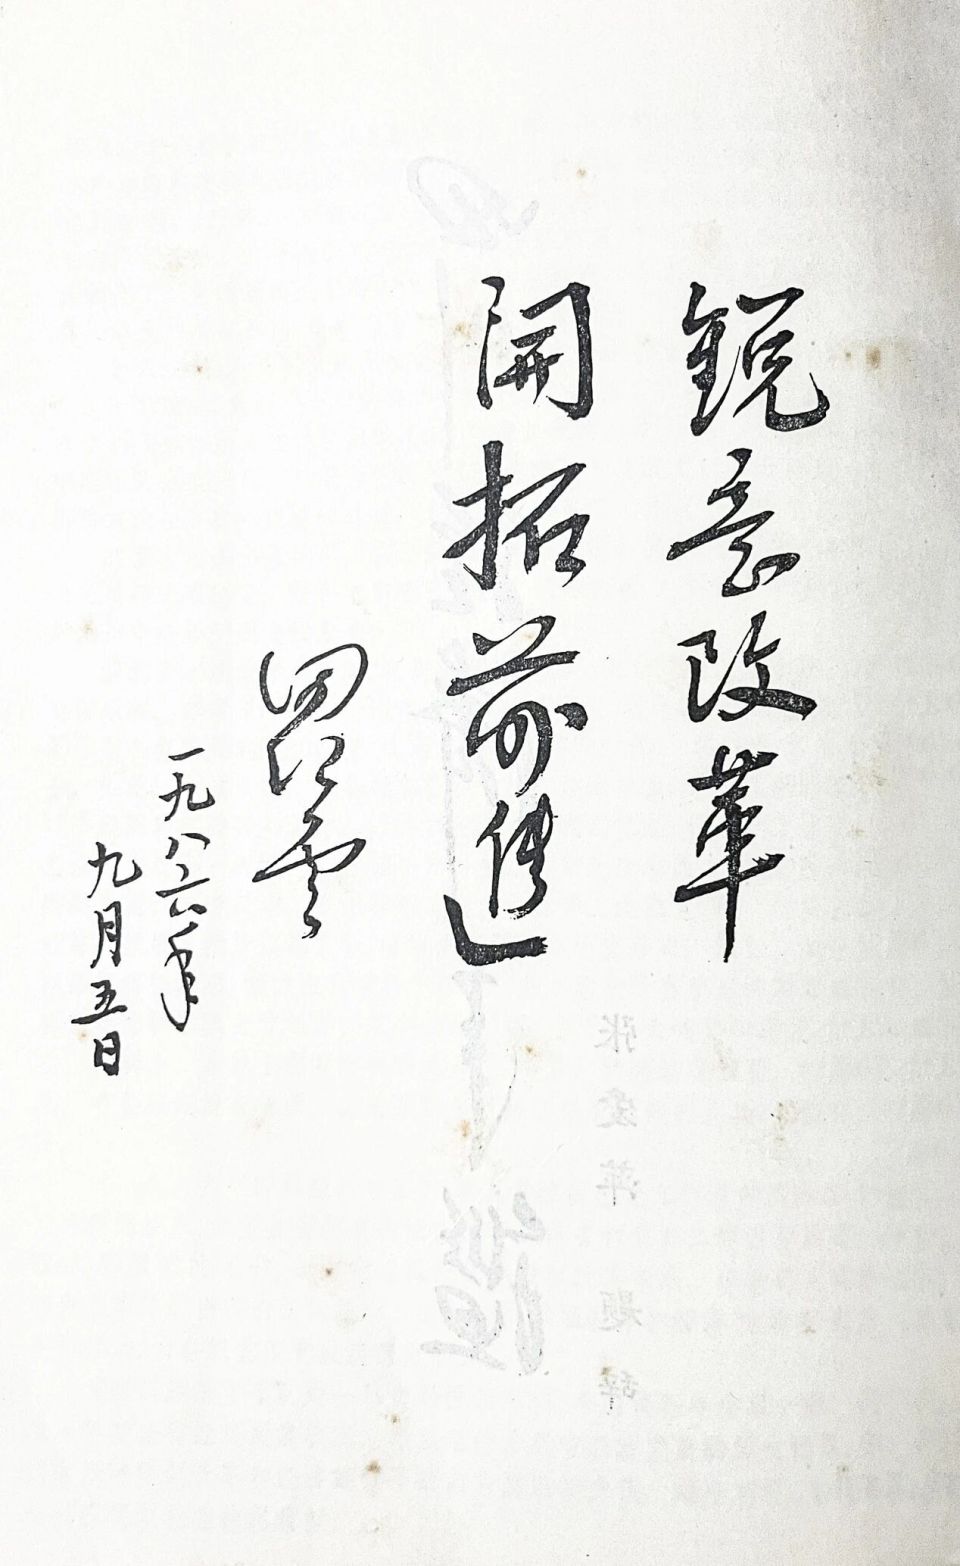 銳意改革
開拓前進
田纪云
一九八六年
九月五日